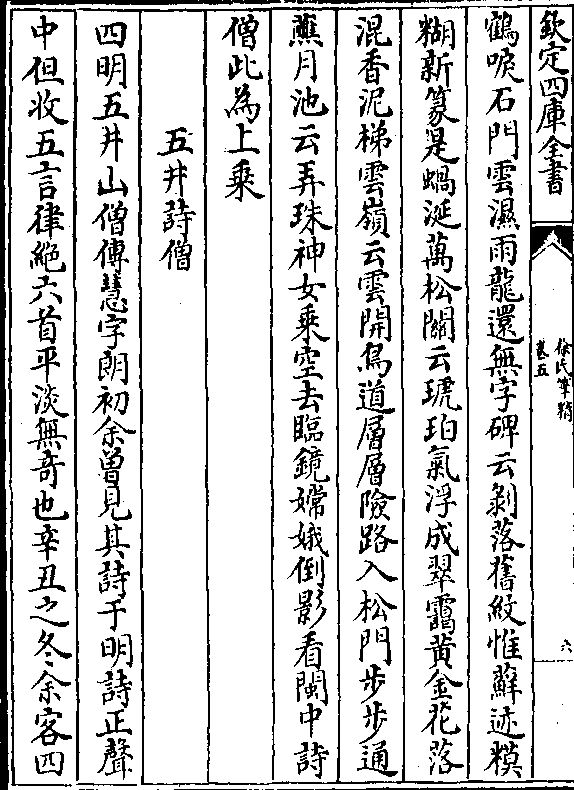 欽定四庫全書
徐氏筆精
卷五
六
鶴唳石門雲濕雨龍還無字碑云剝落舊紋惟蘚迹模
糊新篆是蝸涎萬松關云琥珀氣浮成翠靄黄金花落
混香泥梯雲嶺云雲開鳥道層層險路入松門步步通
蘸月池云弄珠神女乘空去臨鏡嫦娥倒影看閩中詩
僧此為上乗
五井詩僧
四明五井山僧傳慧字朗初余曽見其詩于明詩正聲
中但收五言律絶六首平淡無奇也辛丑之冬余客四